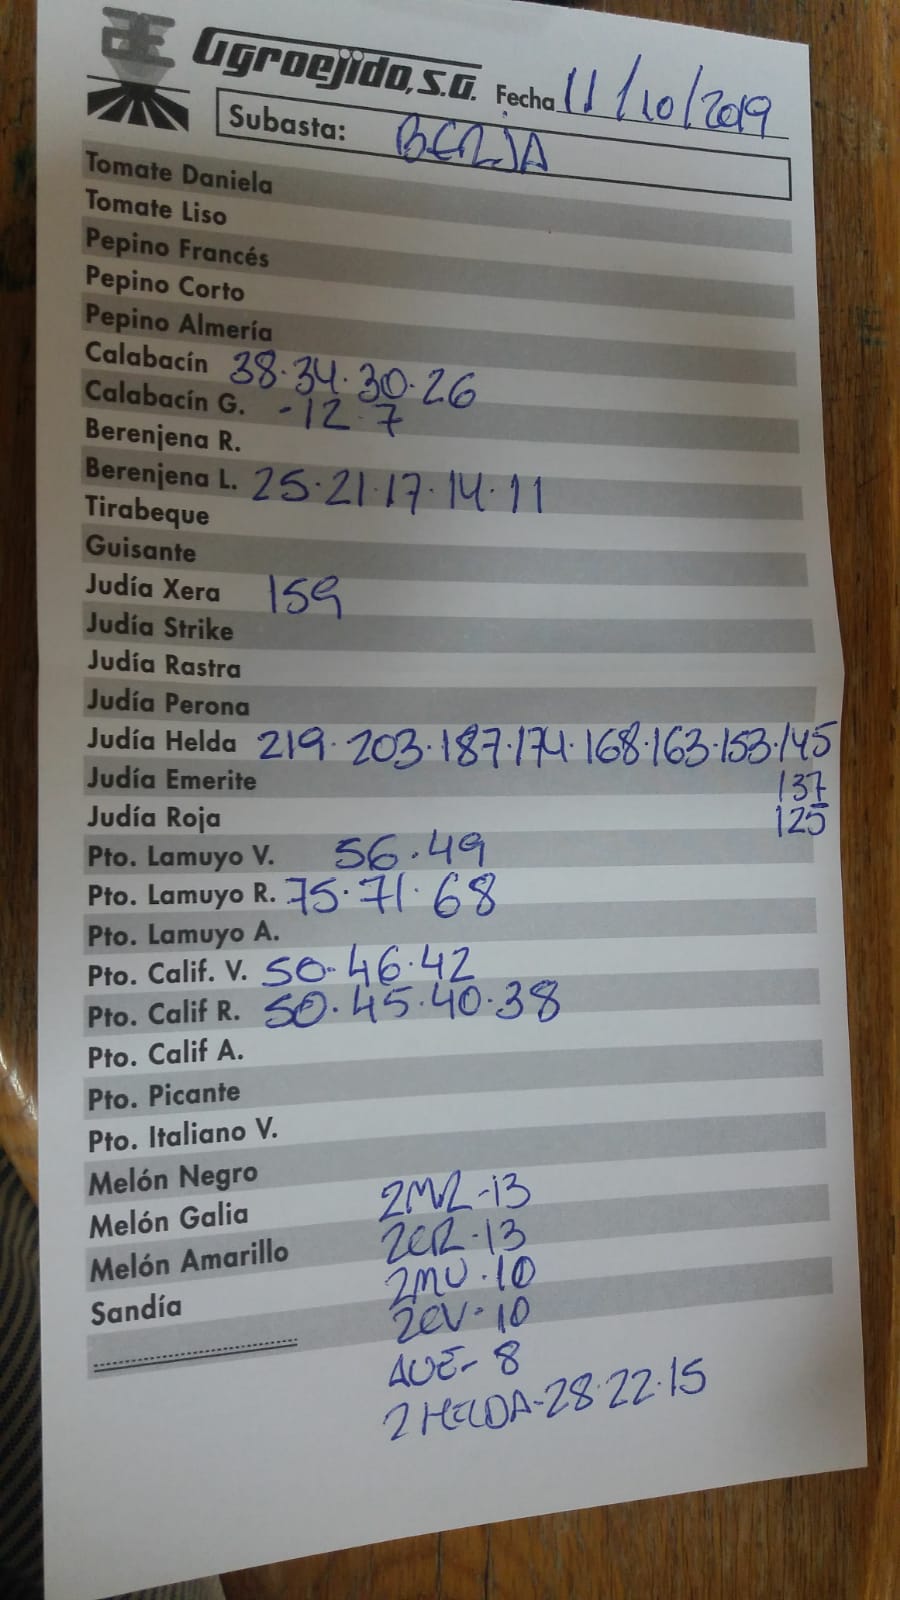 Agroejido, S.A. Fecha 11/10/2019
Subasta: BERJA
Tomate Daniela
Tomate Liso
Pepino Francés
Pepino Corto
Pepino Almería
Calabacín 38·34·30·26
Calabacín G. -12·7
Berenjena R.
Berenjena L. 25·21·17·14·11
Tirabeque
Guisante
Judía Xera 159
Judía Strike
Judía Rastra
Judía Perona
Judía Helda 219·203·187·174·168·163·153·145
Judía Emerite 137
Judía Roja 125
Pto. Lamuyo V. 56·49
Pto. Lamuyo R. 75·71·68
Pto. Lamuyo A.
Pto. Calif. V. 50·46·42
Pto. Calif R. 50·45·40·38
Pto. Calif A.
Pto. Picante
Pto. Italiano V.
Melón Negro
Melón Galia 2MR-13
Melón Amarillo 2CR-13
Sandía 2MV·10
2CV-10
AVE-8
2 HELDA-28·22·15